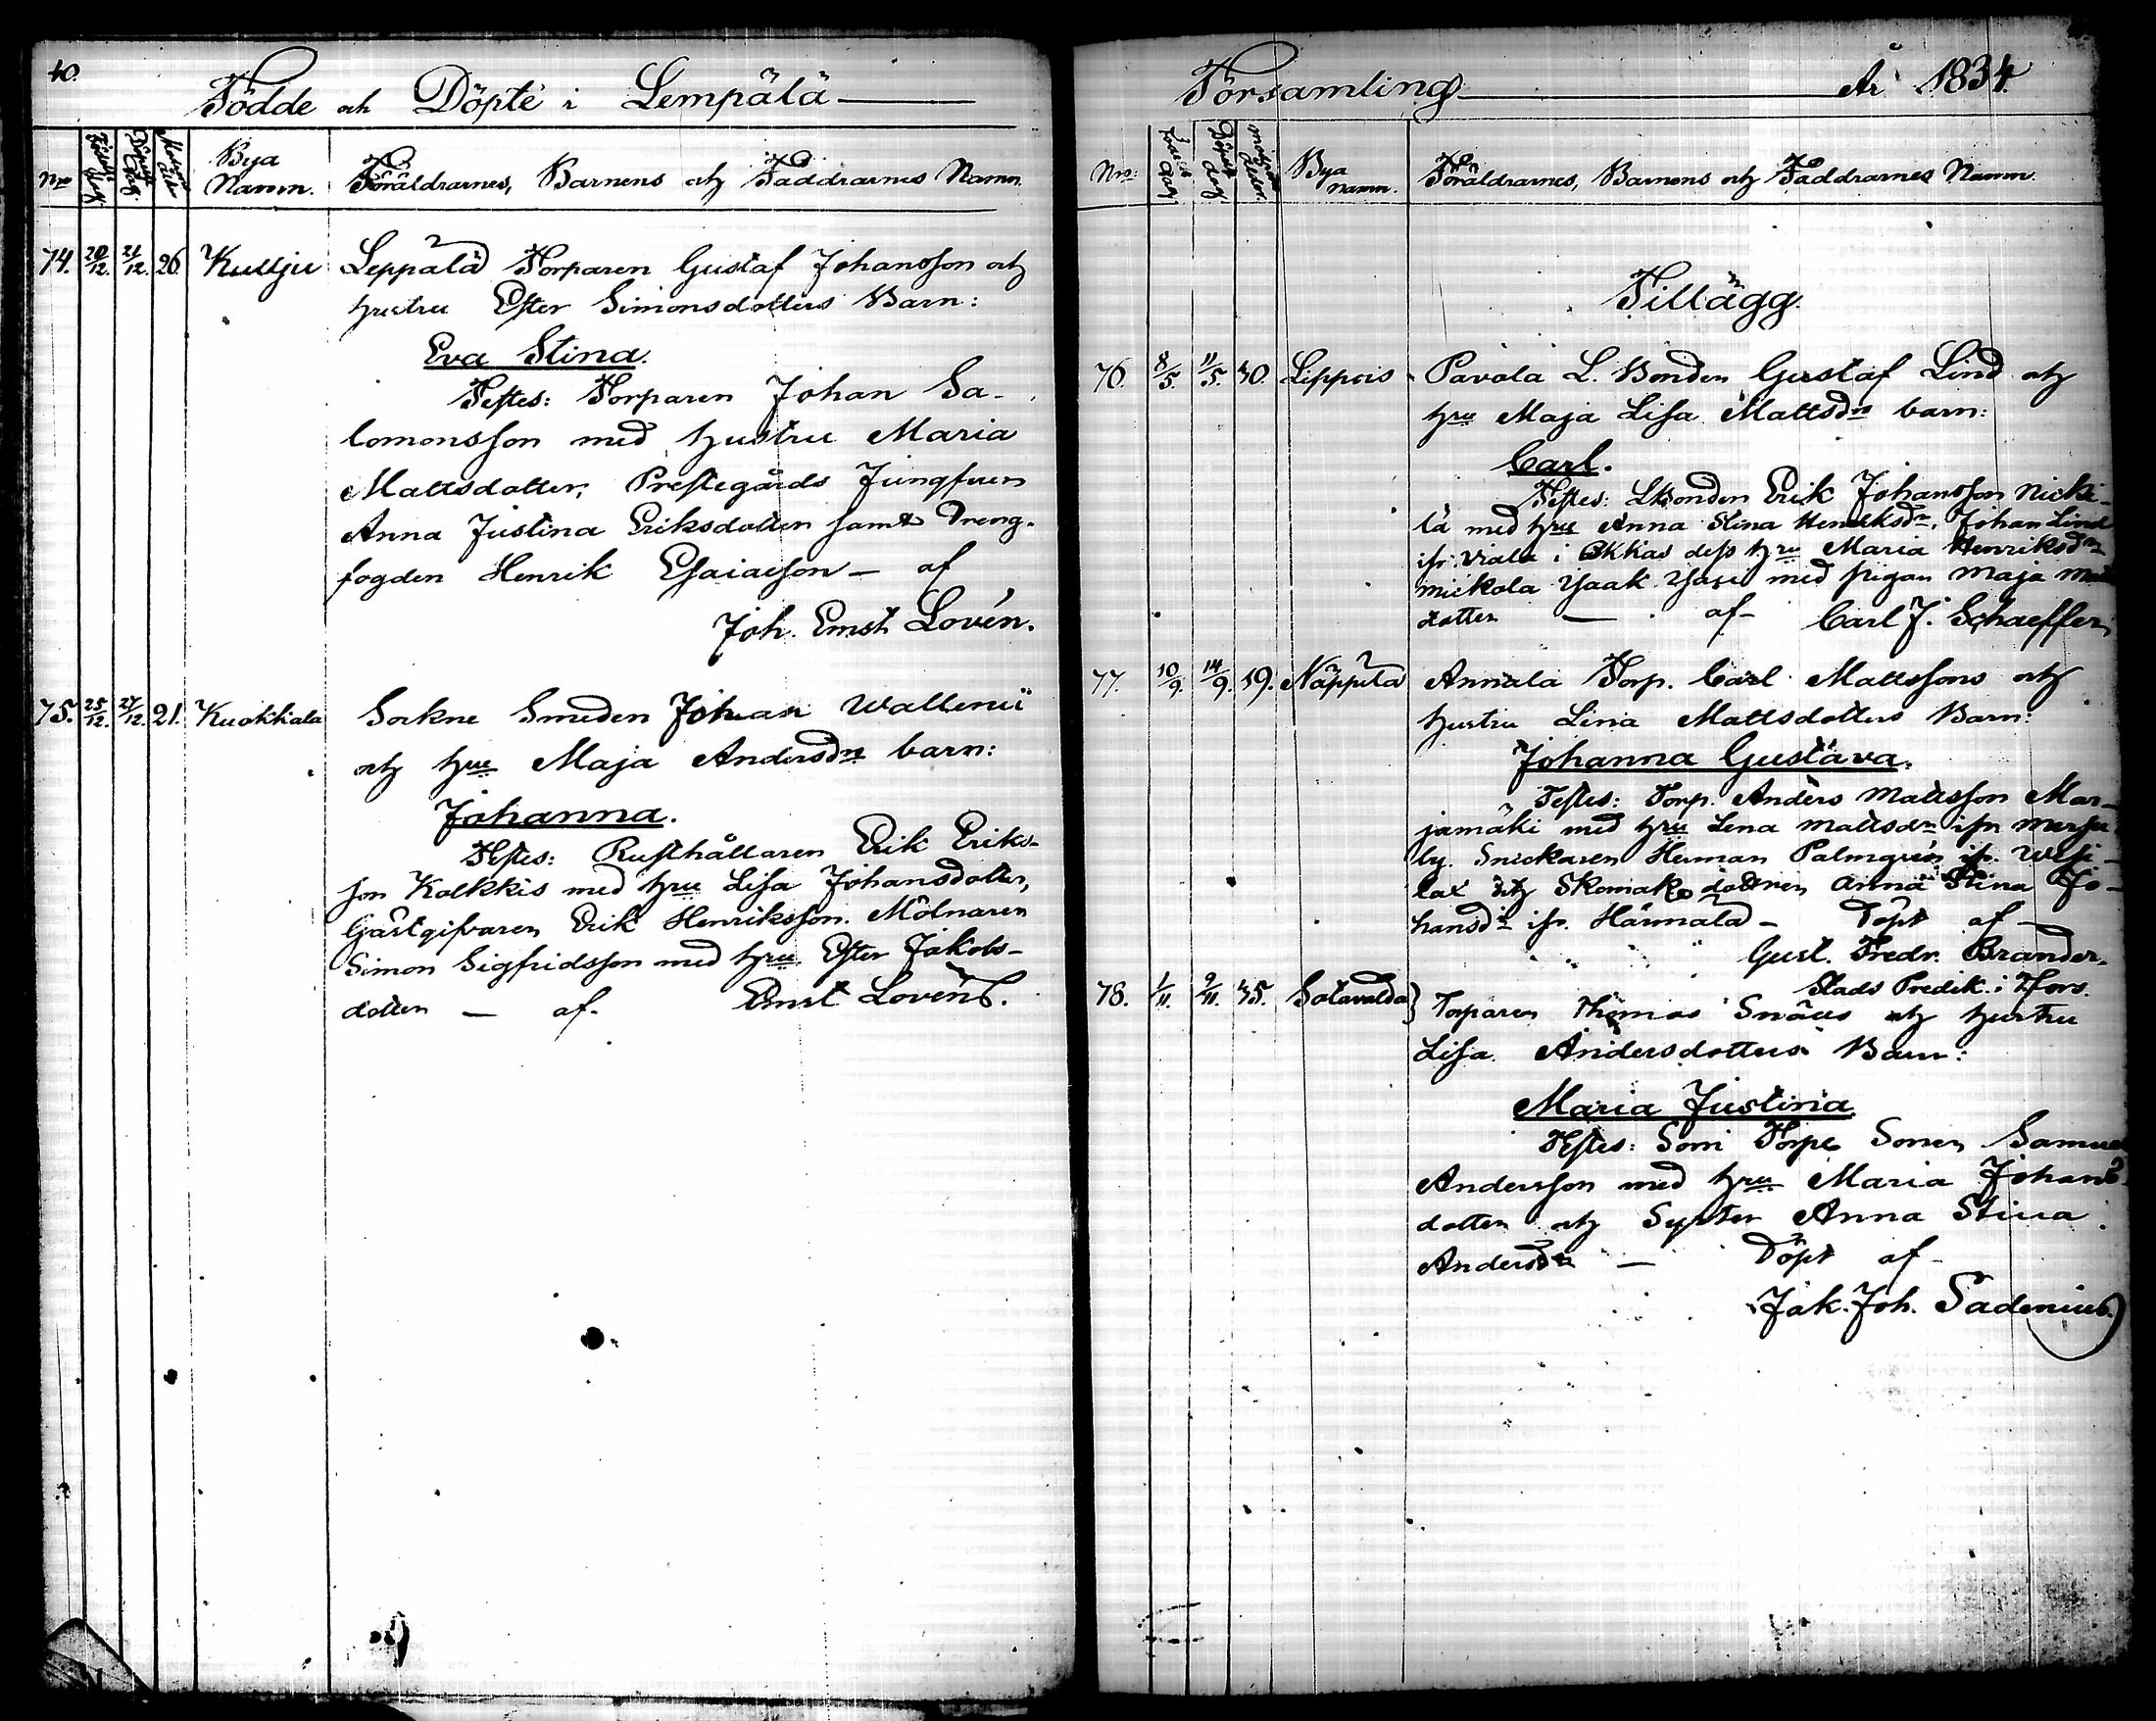 40.
Födde och Döpte i Lempälä
No
Födelse dag.
Döpelse dag.
Moders ålder
Bya Namn.
Föräldrarnes, Barnens och Faddrarnes Namn.
74. 20/12. 21/12. 26. Kulju Leppälä Torparen Gustaf Johansson och
hustru Ester Simonsdotters Barn:
Eva Stina.
Testes: Torparen Johan Sa-
lomonsson med hustru Maria
Mattsdotter, Prestegårds Jungfrun
Anna Justina Eriksdotter samt Dreng-
fogden Henrik Esaiaeson — af
Joh. Ernst Lovén.
75. 25/12. 27/12. 21. Kuokkala Sockne Smeden Johan Wallenii
och hru Maja Andersdrs barn:
Johanna.
Testes: Rusthållaren Erik Eriks-
son Kolkkis med hru Lisa Johansdotter,
Gästgifvaren Erik Henriksson. Mölnaren
Simon Sigfridsson med hru Ester Jakobs-
dotter — af. Ernst Lovén.
Församling År 1834.
Nro:
Födelse dag.
Döpelse dag.
moders ålder.
Bya namn.
Föräldrarnes, Barnens och Faddrarnes Namn.
Tillägg.
76. 8/5. 11/5. 40. Lippois Pavola L. Bonden Gustaf Lind och
hru Maja Lisa Mattsdrs barn:
Carl.
Testes: LBonden Erik Johansson Nicki-
lä med hru Anna Stina Henriksdr, Johan Lind
ifr. Viala i dess hru Maria Henriksdr
Mickola Isaak med pigan Maja
dotter — af Carl J. Schaeffer
77. 10/9. 14/9. 19. Näppilä Annala Torp. Carl Mattssons och
hustru Lina Mattsdotters Barn:
Johanna Gustava.
Testes: Torp. Anders Mattsson Mar-
jamäki med hru Lena Mattsdr ifr
by. Snickaren Herman Palmgrén ifr. Wesi-
lax och Skomak. dottren Anna Stina Jo-
hansdr ifr. Härmälä — Döpt af —
Gust. Fredr. Brander,
Stads Predik. i Hfors.
78. 1/11. 2/11. 35. Sotavalda Torparen Thomas och hustru
Lisa Andersdotters Barn:
Maria Justina
Testes: Soni Torpe Sonen Samuel
Andersson med hru Maria Johans-
dotter och Syster Anna Stina
Andersdr — Döpt af —
Jak. Joh. Sadenius.